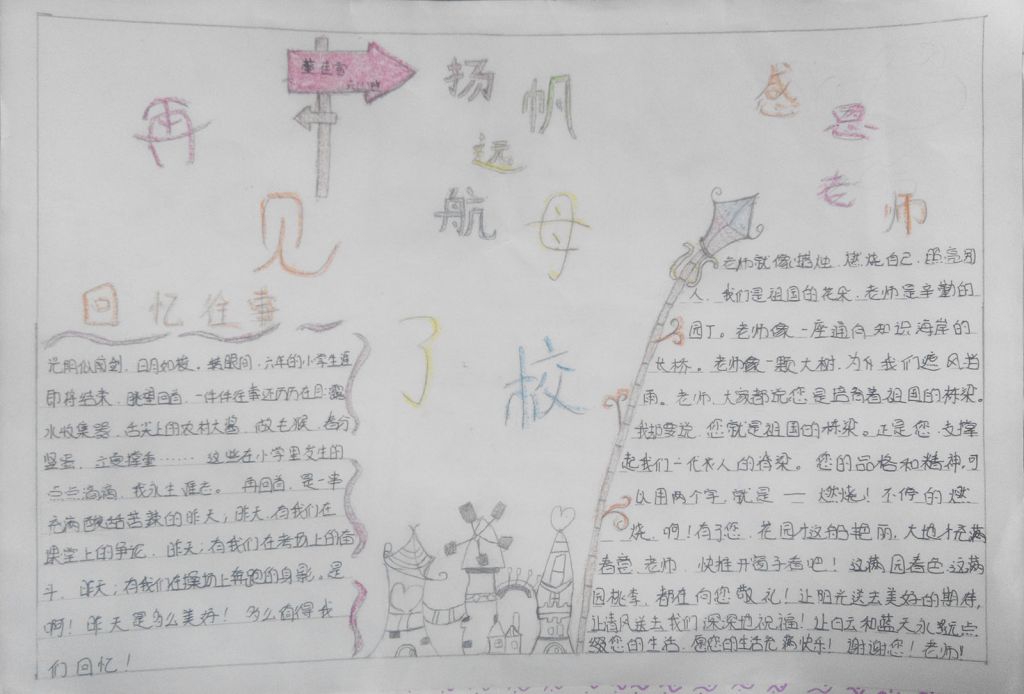 再见了母校
扬帆远航
感恩老师
回忆往事
光阴似箭,日月如梭。转眼间,六年的小学生涯
即将结束,眺望回首,一件件往事还历历在目:露
水收集器、舌尖上的农村大酱、做老猴、春分
竖蛋、立夏撑重……这些在小学里发生的
点点滴滴,我永生难忘。再回首,是一串
充满酸甜苦辣的昨天;昨天,有我们在
课堂上的争论,昨天;有我们在考场上的奋
斗,昨天;有我们在操场上奔跑的身影。是
啊!昨天是多么美好!多么值得我
们回忆!
老师就像蜡烛,燃烧自己,照亮别
人,我们是祖国的花朵,老师是辛勤的
园丁。老师像一座通向知识海岸的
长桥。老师像一颗大树,为我们遮风挡
雨。老师,大家都说您是培育着祖国的栋梁。
我却要说,您就是祖国的栋梁。正是您,支撑
起我们一代代人的脊梁。您的品格和精神,可
以用两个字,就是——燃烧!不停的燃
烧。啊!有了您,花园才这般艳丽,大地才充满
春意,老师,快推开窗子看吧!这满园春色,这满
园桃李,都在向您敬礼!让阳光送去美好的期待,
让清风送去我们深深地祝福!让白云和蓝天永远点
缀您的生活,愿您的生活充满快乐!谢谢您!老师!